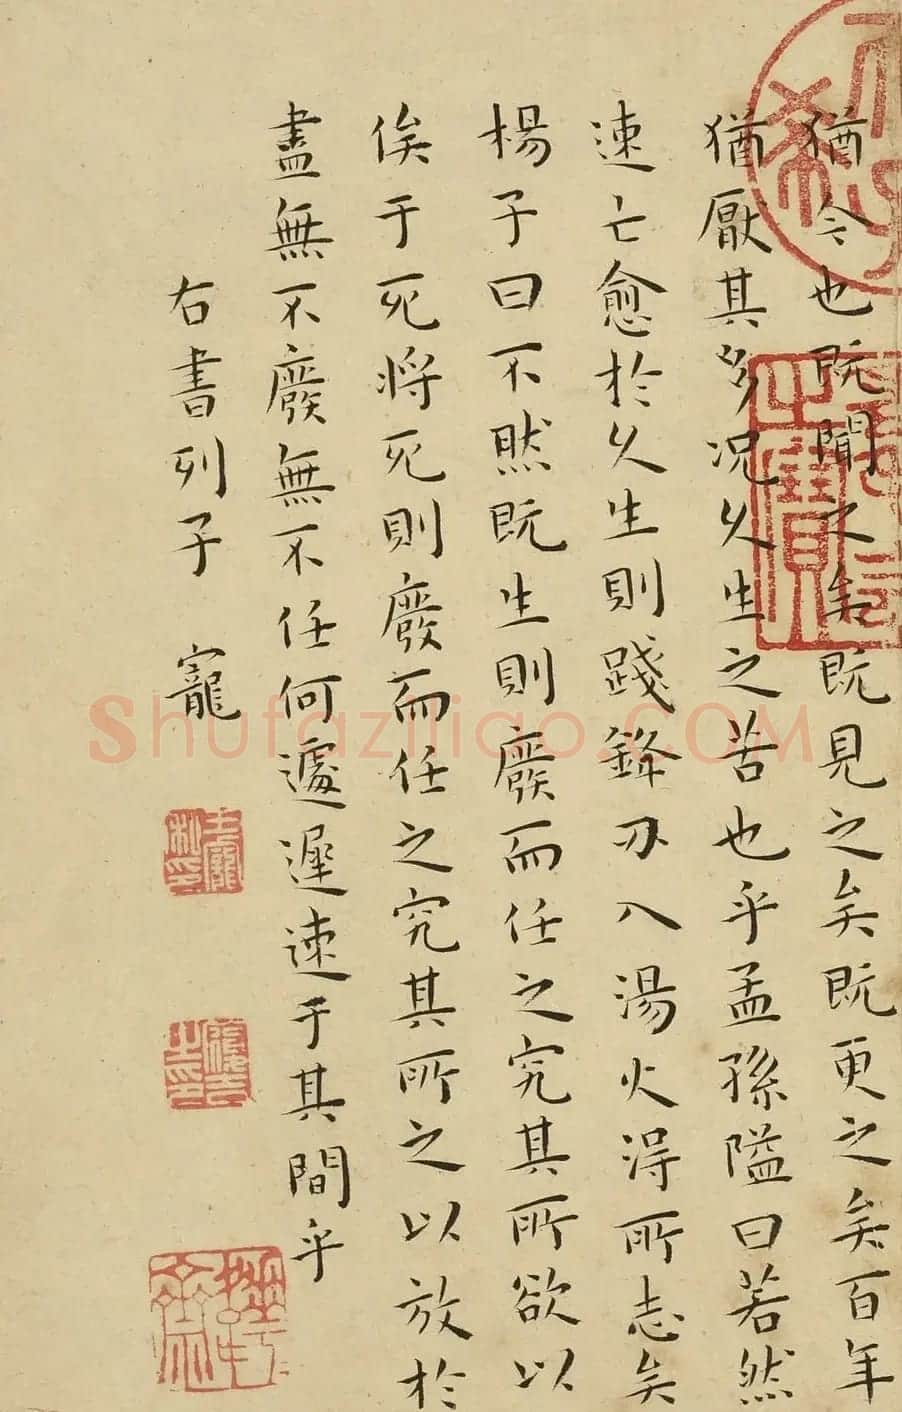 猶今也既聞之矣既見之矣既更之矣百年
猶厭其多况久生之苦也乎孟孫隘曰若然
速亡愈於久生則踐鋒刃入湯火得所志矣
楊子曰不然既生則廢而任之究其所欲以
俟于死將死則廢而任之究其所之以放於
盡無不廢無不任何遽遲速于其間乎
右書列子 寵
王寵私印
Shufaziliao.COM